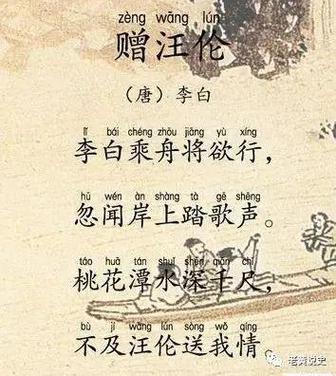 zèng wāng lún
赠汪伦
（唐）李白
lǐ bái chéng zhōu jiāng yù xíng
李白乘舟将欲行，
hū wén àn shàng tà gē shēng
忽闻岸上踏歌声。
táo huā tán shuǐ shēn qiān chǐ
桃花潭水深千尺，
bù jí wāng lún sòng wǒ qíng
不及汪伦送我情。
老黄说史